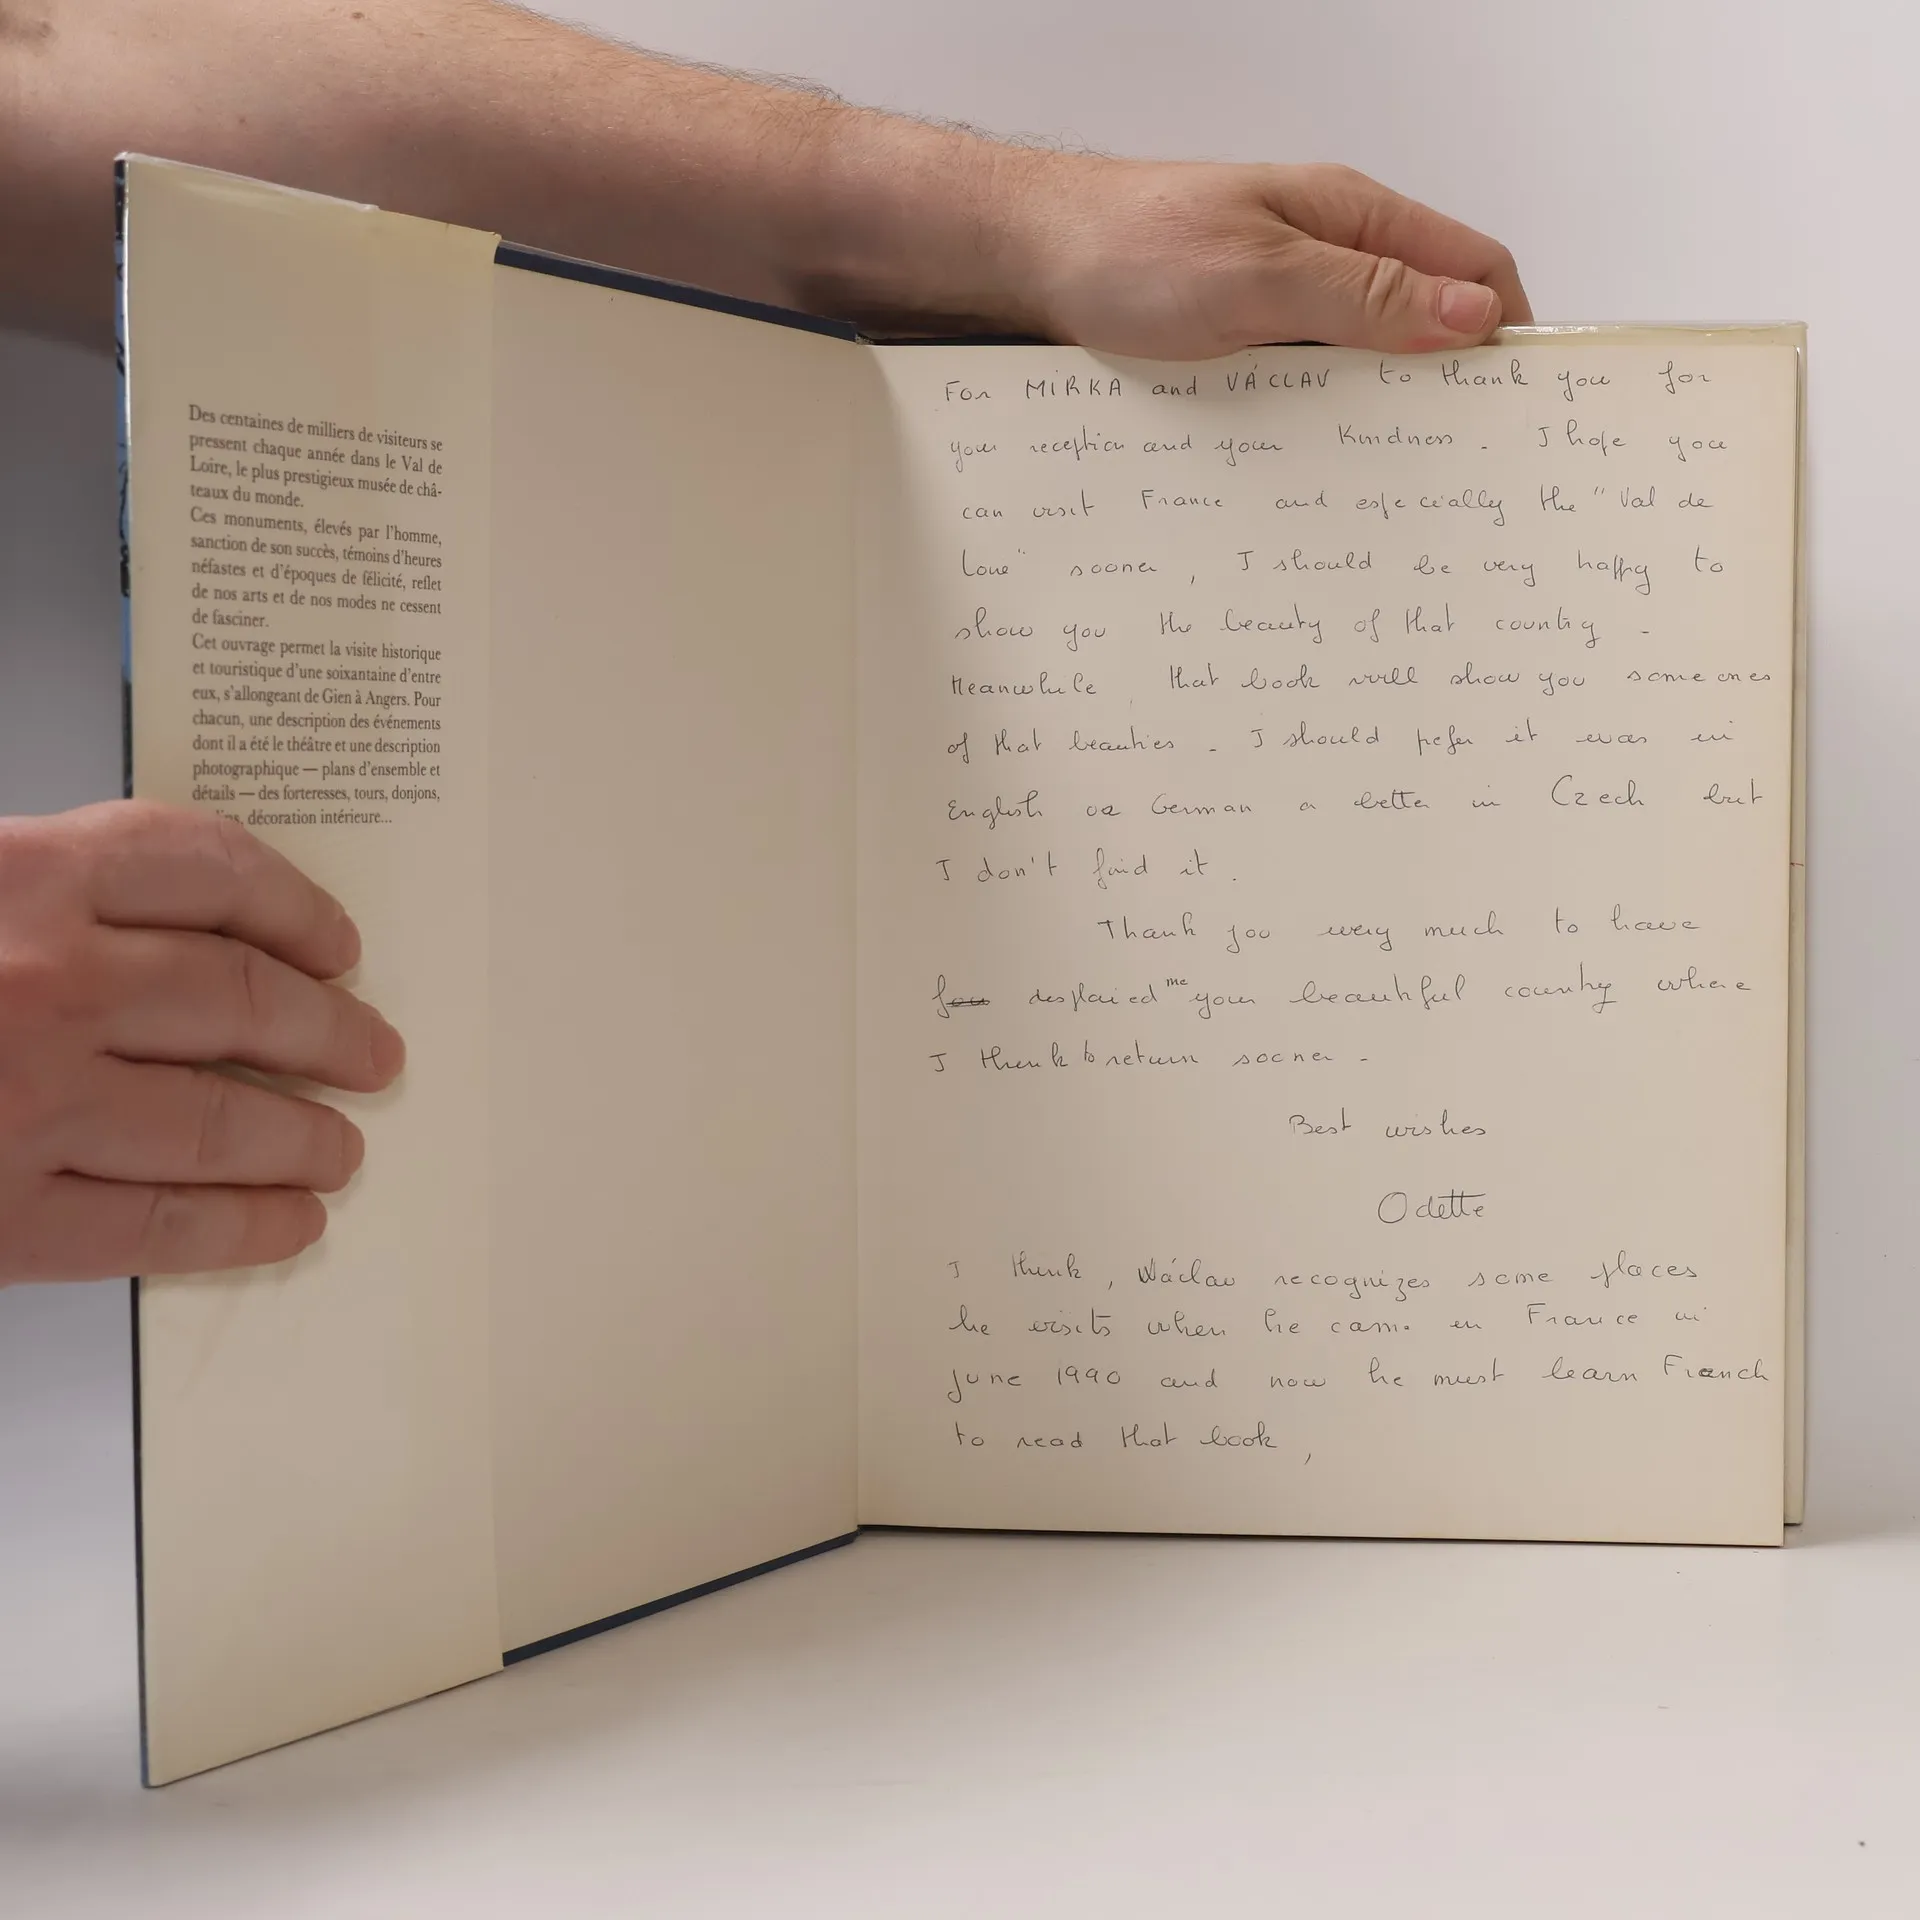 Des centaines de milliers de visiteurs se
pressent chaque année dans le Val de
Loire, le plus prestigieux musée de châ-
teaux du monde.
Ces monuments, élevés par l'homme,
sanction de son succès, témoins d'heures
néfastes et d'époques de félicité, reflet
de nos arts et de nos modes ne cessent
de fasciner.
Cet ouvrage permet la visite historique
et touristique d'une soixantaine d'entre
eux, s'allongeant de Gien à Angers. Pour
chacun, une description des événements
dont il a été le théâtre et une description
photographique — plans d'ensemble et
détails — des forteresses, tours, donjons,
décoration intérieure...
For MIRKA and VÁCLAV to thank you for
your reception and your Kindness. I hope you
can visit France and especially the "Val de
Loire" sooner, I should be very happy to
show you the beauty of that country -
Meanwhile that book will show you some ones
of that beauties. I should prefer it was in
English or German a better in Czech but
I don't find it.
Thank you very much to have
desplaied me your beautiful country where
I think to return sooner -
Best wishes
Odette
I think, Václav recognizes some places
he visits when he came in France in
June 1990 and now he must learn French
to read that book,